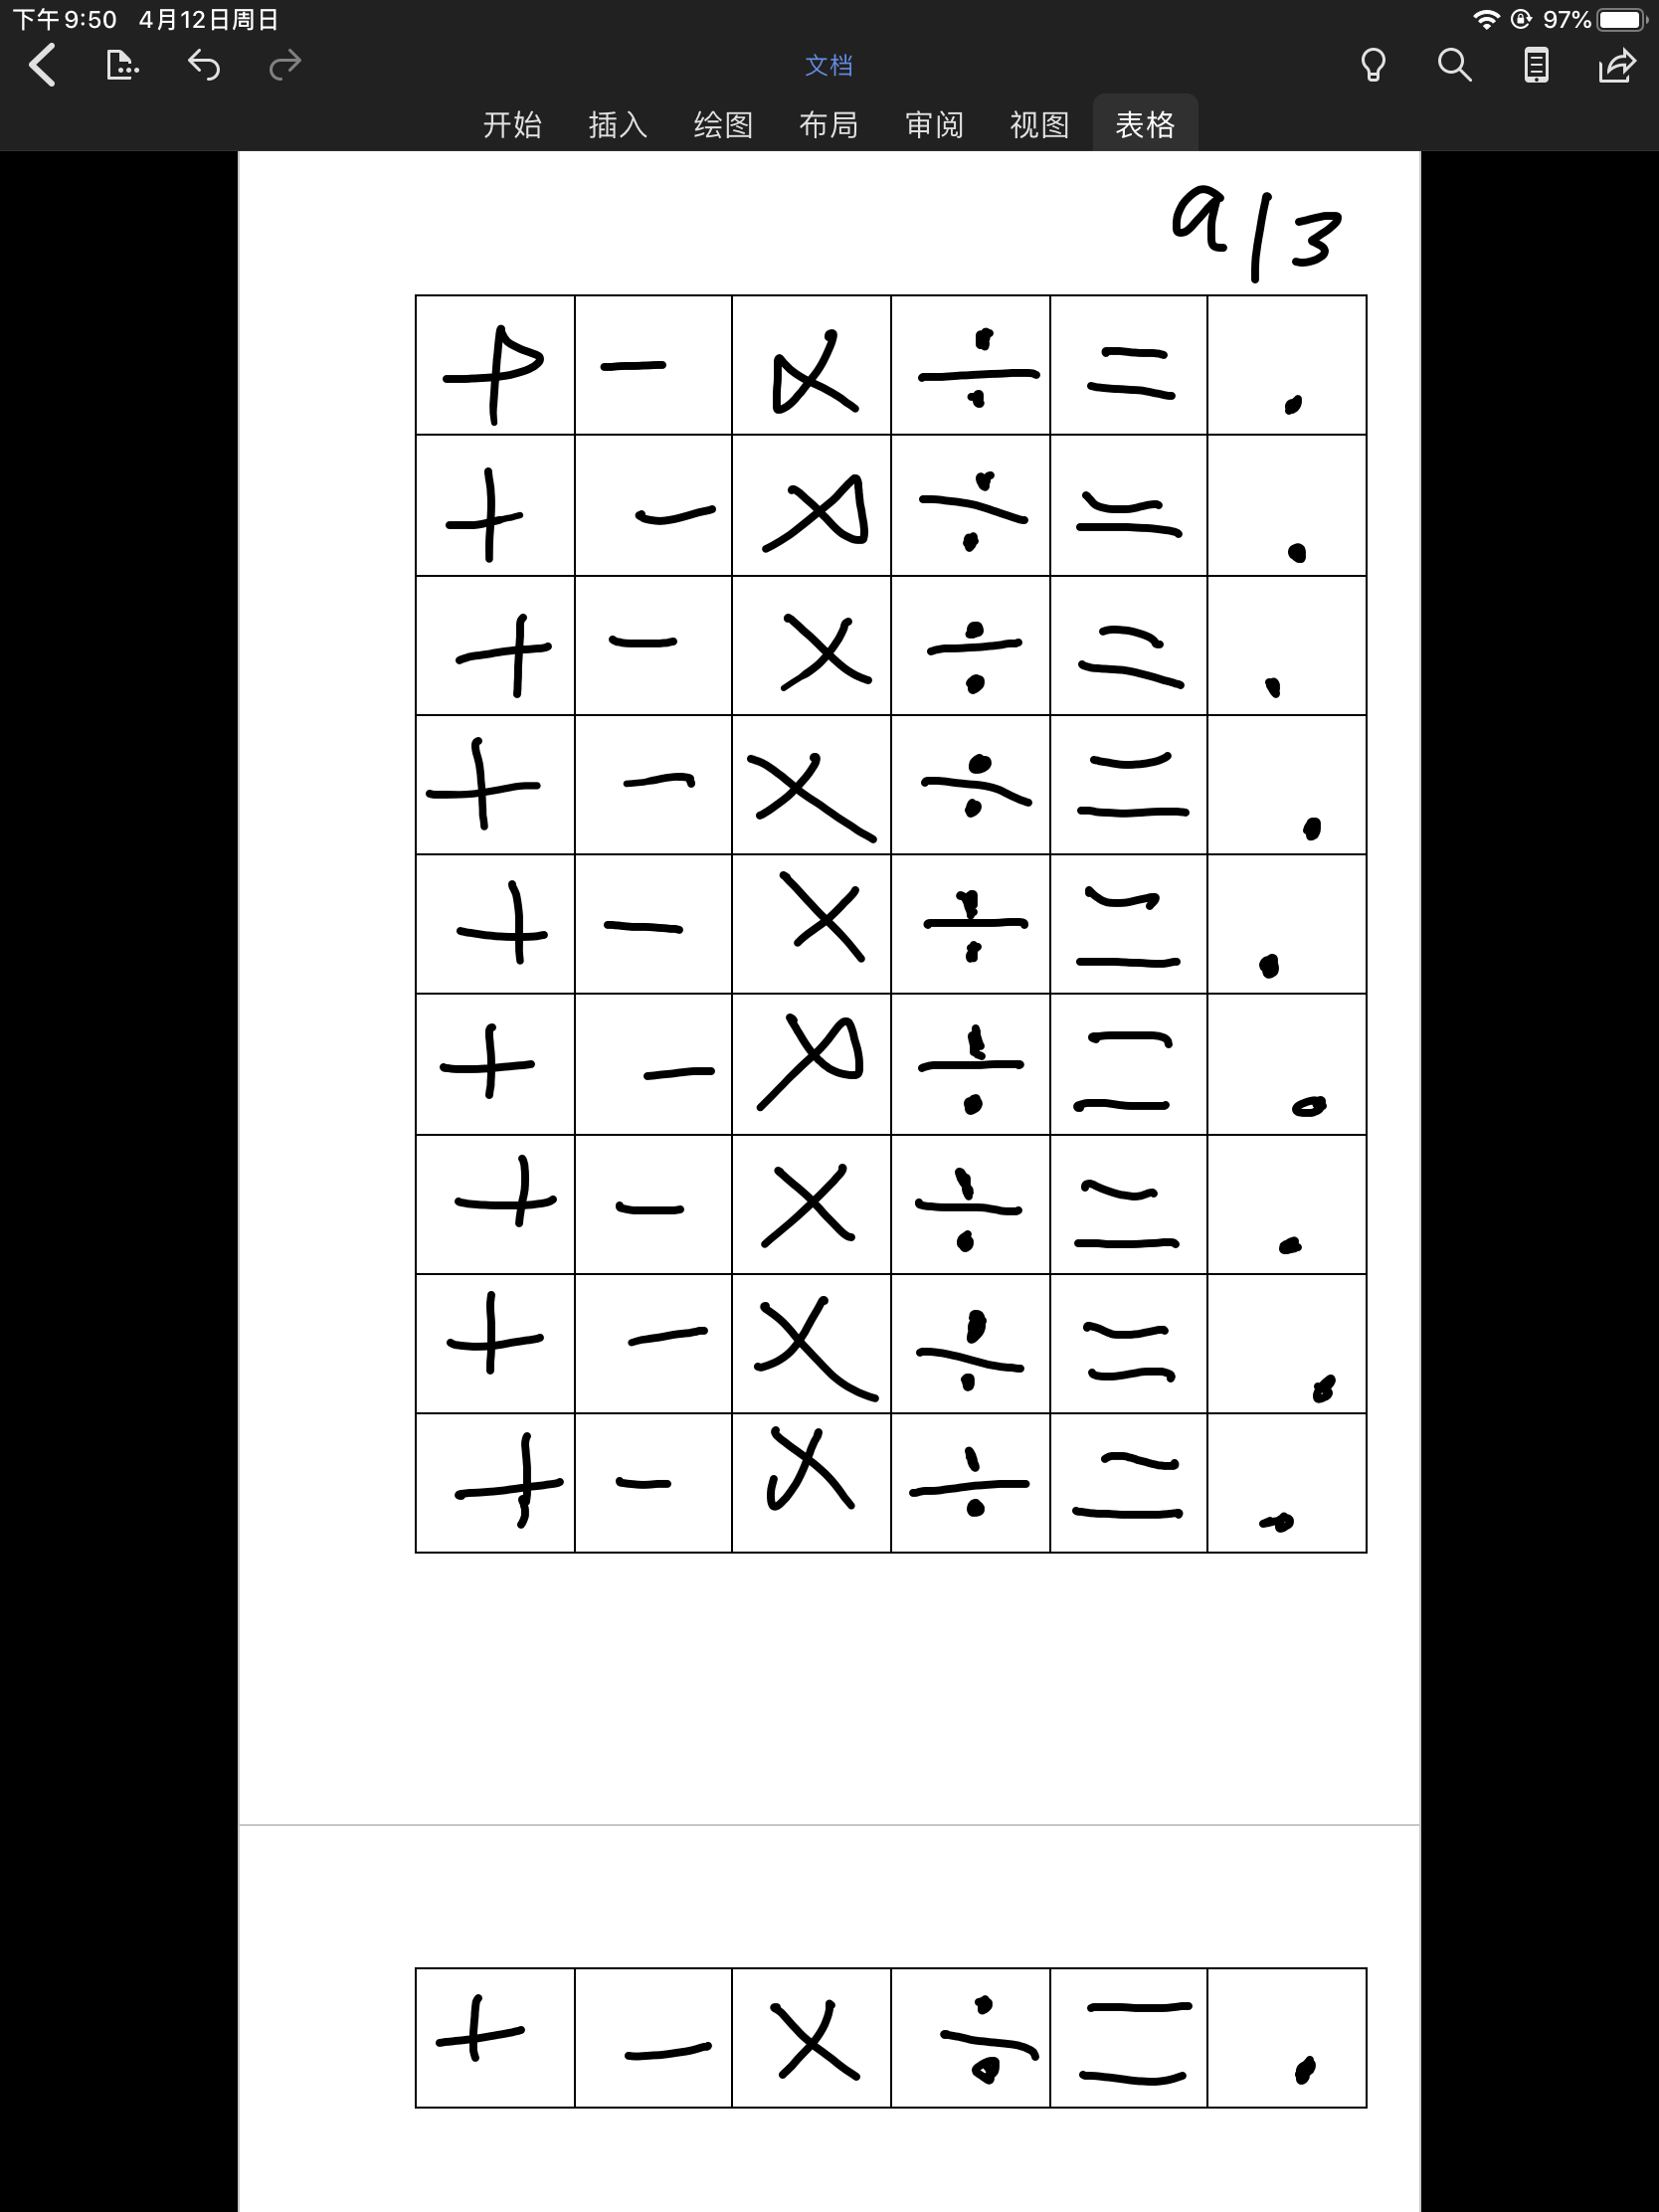 下午9:50 4月12日周日 97%
文档
开始 插入 绘图 布局 审阅 视图 表格
a/3
+ − × ÷ = .
+ − × ÷ = .
+ − × ÷ = .
+ − × ÷ = .
+ − × ÷ = .
+ − × ÷ = .
+ − × ÷ = .
+ − × ÷ = .
+ − × ÷ = .
+ − × ÷ = .